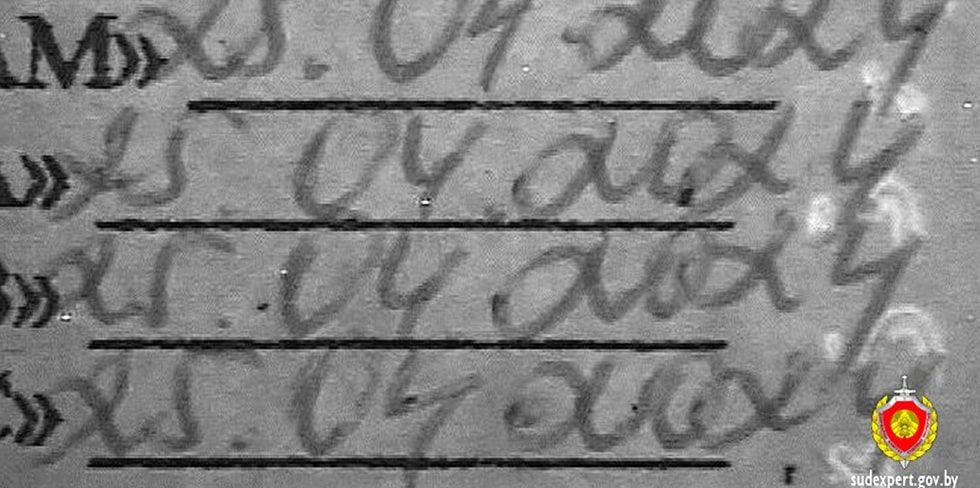 АМ» 25. 04 2024
» 25 04 2024
» 25. 04 2024
» 25. 04 2024
sudexpert.gov.by